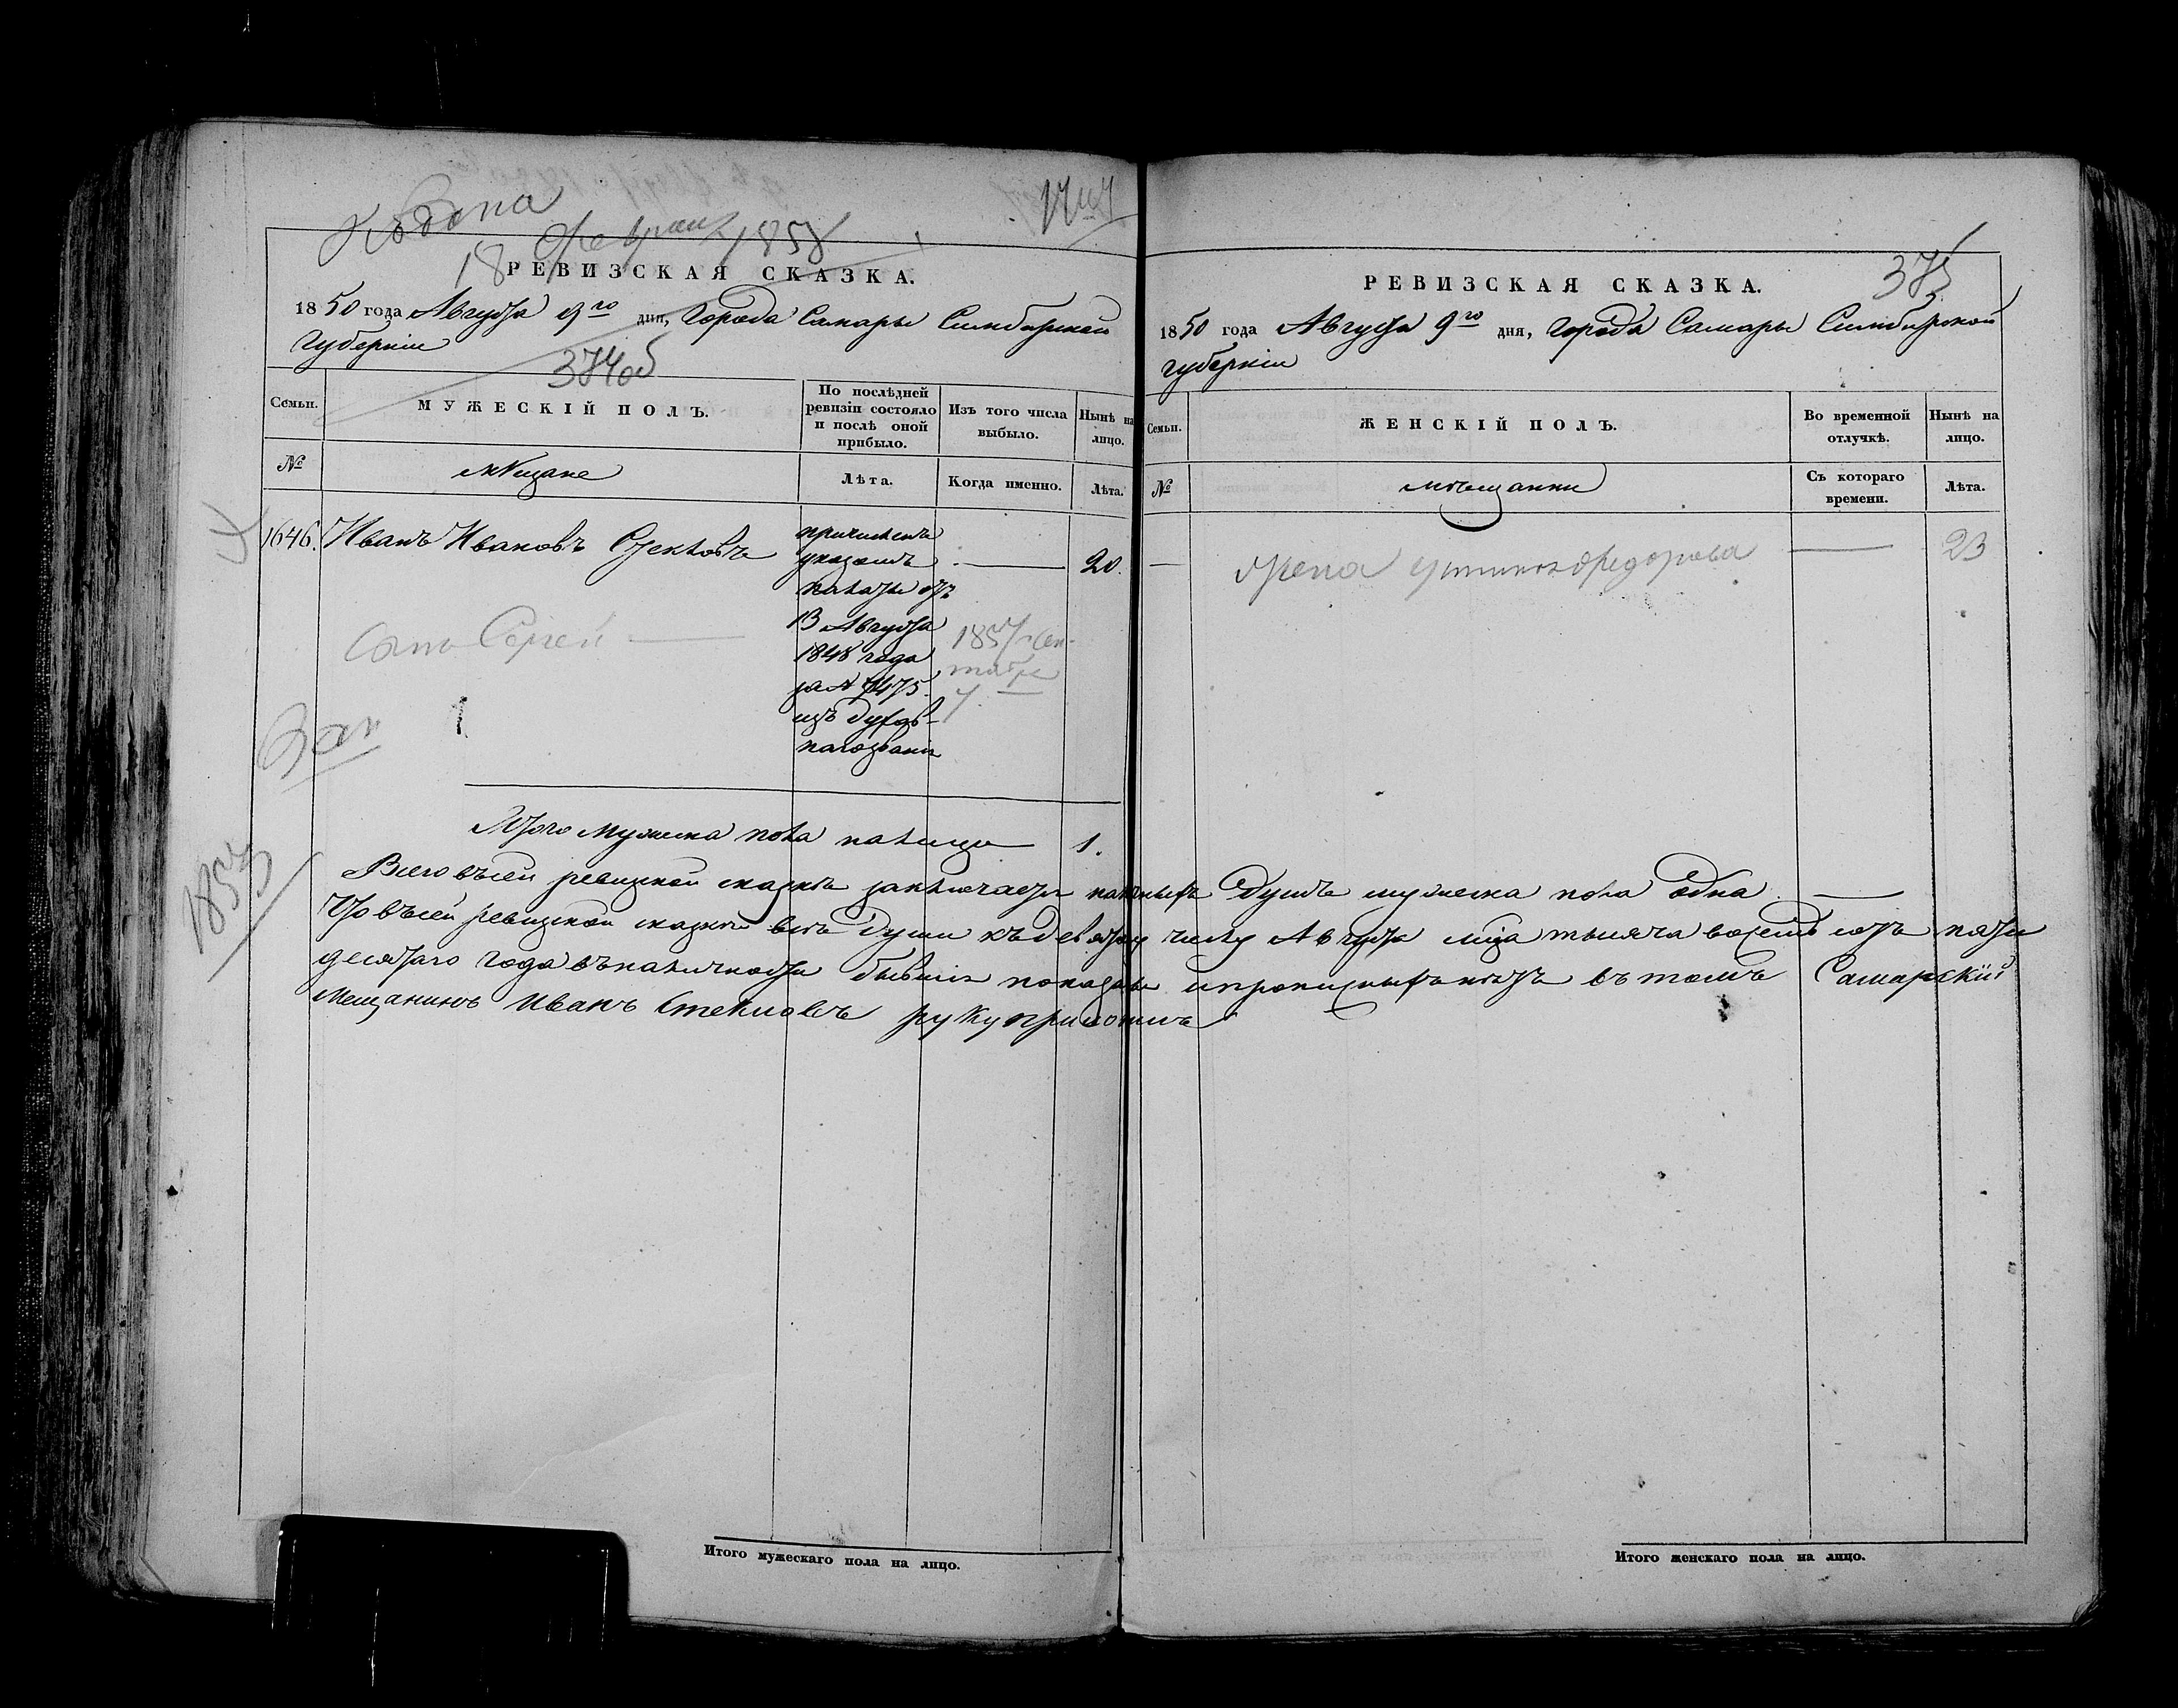 18 Февраля 1858
РЕВИЗСКАЯ СКАЗКА.
1850 года Августа 9го дня, Города Самары Симбирской
Губернiи
374об
Семьи.
МУЖЕСКIЙ ПОЛЪ.
По послѣдней
ревизiи состояло
и послѣ оной
прибыло.
Изъ того числа
выбыло.
Нынѣ на
лицо.
№
мѣщане
Лѣта.
Когда именно.
Лѣта.
1646. Иванъ Ивановъ Стекловъ
причисленъ
указомъ
палаты отъ
13 Августа
1848 года
за №
изъ духов-
наго званiя
20.
Сынъ Сергей
1857 Сен-
тября
1
1853
Итого мужеска пола налицо 1.
Всего въ сей ревизской сказкѣ заключается наличныхъ душъ мужеска пола одна
Что въ сей ревизской сказкѣ всѣ души къ девятому числу Августа мца тысяча восемь сотъ пяти
десятаго года въ наличности бывшiя показаны и прописныхъ нѣтъ въ томъ Самарскiй
Мещанинъ Иванъ Стекловъ руку приложилъ
Итого мужескаго пола на лицо.
375
РЕВИЗСКАЯ СКАЗКА.
1850 года Августа 9го дня, города Самары Симбирской
губернiи
Семьи.
ЖЕНСКIЙ ПОЛЪ.
Во временной
отлучкѣ.
Нынѣ на
лицо.
№
мѣщанки
Съ котораго
времени.
Лѣта.
Жена Федорова 23
Итого женскаго пола на лицо.